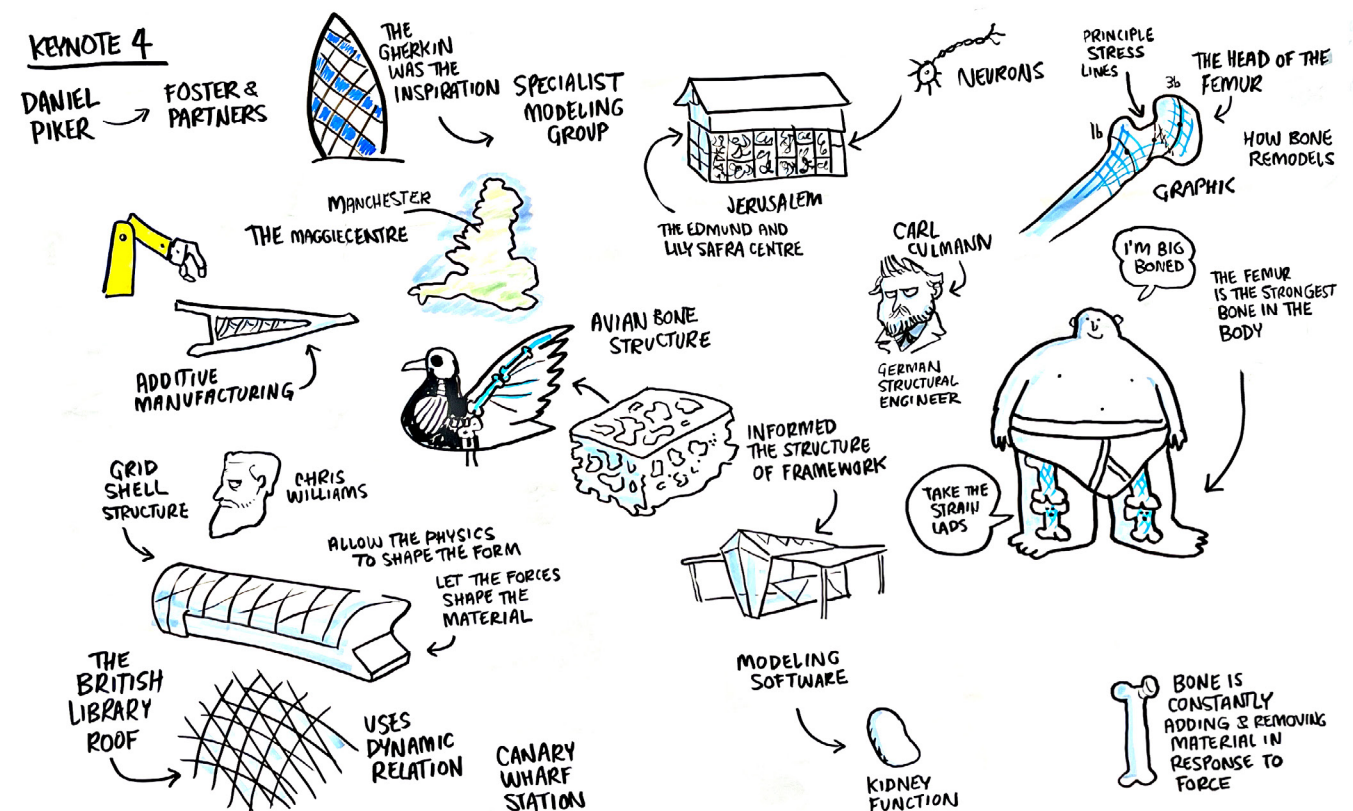 KEYNOTE 4
DANIEL
PIKER
FOSTER &
PARTNERS
THE
GHERKIN
WAS THE
INSPIRATION
SPECIALIST
MODELING
GROUP
NEURONS
JERUSALEM
THE EDMUND AND
LILY SAFRA CENTRE
PRINCIPLE
STRESS
LINES
3b
1b
THE HEAD OF THE
FEMUR
HOW BONE
REMODELS
GRAPHIC
MANCHESTER
THE MAGGIECENTRE
CARL
CULMANN
GERMAN
STRUCTURAL
ENGINEER
I'M BIG
BONED
THE FEMUR
IS THE STRONGEST
BONE IN THE
BODY
ADDITIVE
MANUFACTURING
AVIAN BONE
STRUCTURE
INFORMED
THE STRUCTURE
OF FRAMEWORK
TAKE THE
STRAIN
LADS
GRID
SHELL
STRUCTURE
CHRIS
WILLIAMS
ALLOW THE PHYSICS
TO SHAPE THE FORM
LET THE FORCES
SHAPE THE
MATERIAL
THE
BRITISH
LIBRARY
ROOF
USES
DYNAMIC
RELATION
CANARY
WHARF
STATION
MODELING
SOFTWARE
KIDNEY
FUNCTION
BONE IS
CONSTANTLY
ADDING & REMOVING
MATERIAL IN
RESPONSE TO
FORCE